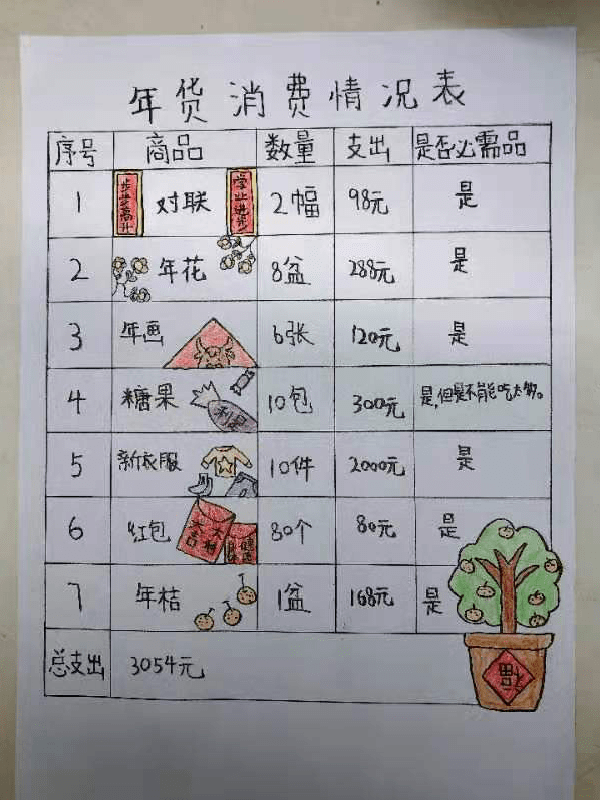 年货消费情况表
序号 商品 数量 支出 是否必需品
1 步步高升 对联 学业进步 2幅 98元 是
2 年花 8盆 288元 是
3 年画 6张 120元 是
4 糖果 利是 10包 300元 是,但是不能吃太多。
5 新衣服 10件 2000元 是
6 红包 大吉 大利 80个 80元 是
7 年桔 1盆 168元 是
总支出 3054元
福